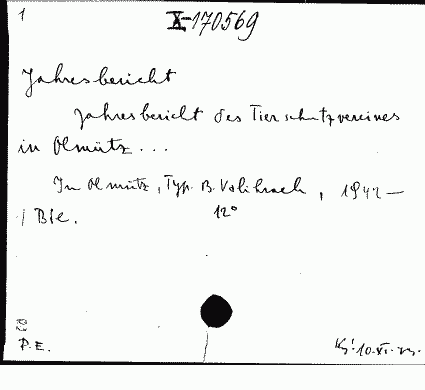 1
X-170569
Jahresbericht
Jahresbericht des Tierschutzvereines
in Olmütz...
In Olmütz, Typ. B. , 1942—
Ble. 12°
P.E. 10.XI.